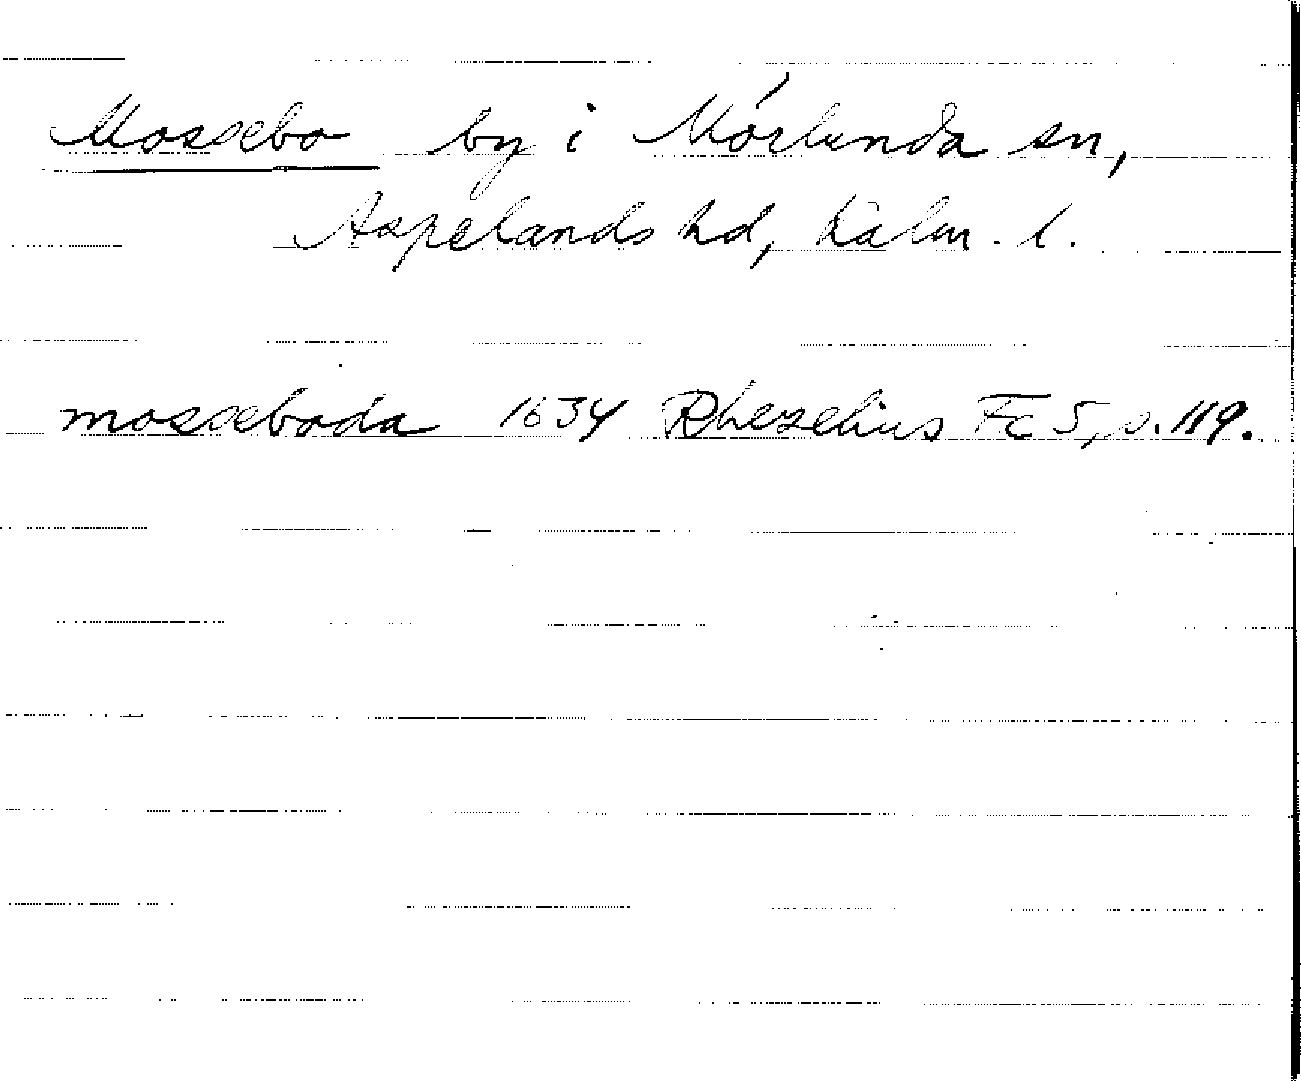 Mossebo by i Mörlunda sn,
Aspelands hd, Kalm. l.
mosseboda 1634 Rhezelius Fc 5, s. 119.